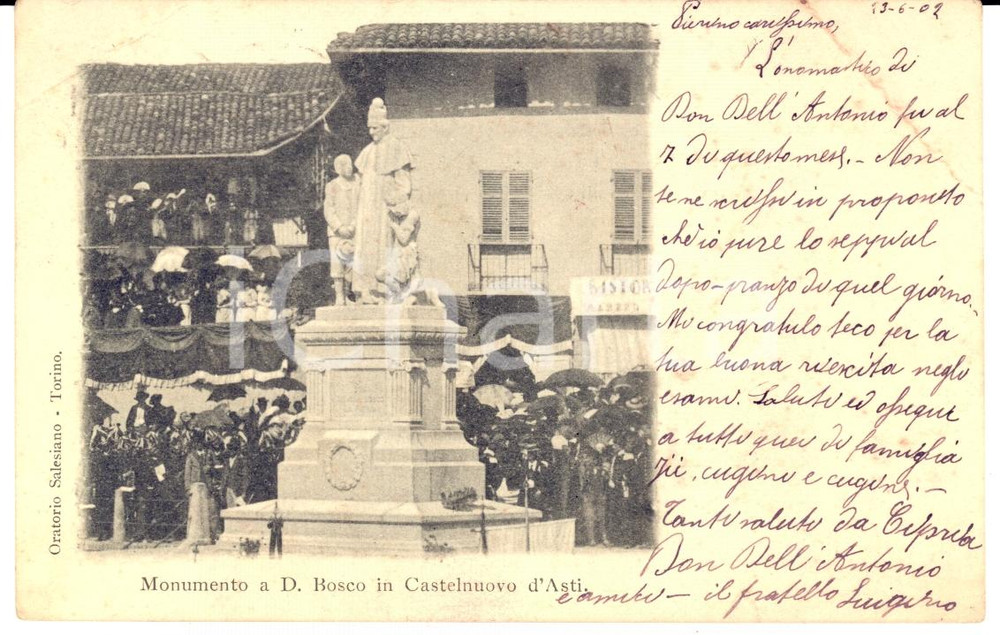 13-6-02
Pierino carissimo,
L'onomastico di
Don Dell'Antonio fu al
di questo mese. - Non
te ne scrissi in proposito
chè io pure lo seppi al
dopo-pranzo di quel giorno.
Mi congratulo teco per la
tua buona riescita negli
esami. Saluti ed ossequi
a tutti quei di famiglia
zii, cugini e cugine. -
Tanti saluti da
Don Dell'Antonio
e amici - il fratello Luigino
RISTOR
Oratorio Salesiano - Torino.
Monumento a D. Bosco in Castelnuovo d'Asti.
iCharta